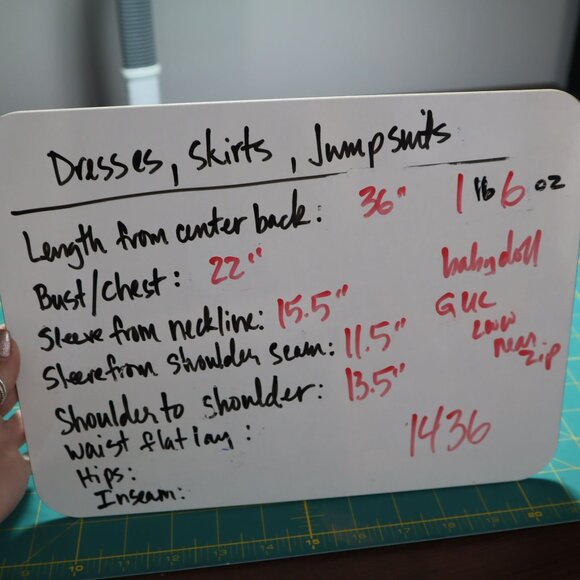 Dresses, Skirts, Jumpsuits
Length from center back: 36" 1 lb 6 oz
Bust/Chest: 22"
babydoll
Sleeve from neckline: 15.5"
GUC
Sleeve from shoulder seam: 11.5"
near
zip
Shoulder to shoulder: 13.5"
Waist flat lay:
1436
Hips:
Inseam:
10
15
20